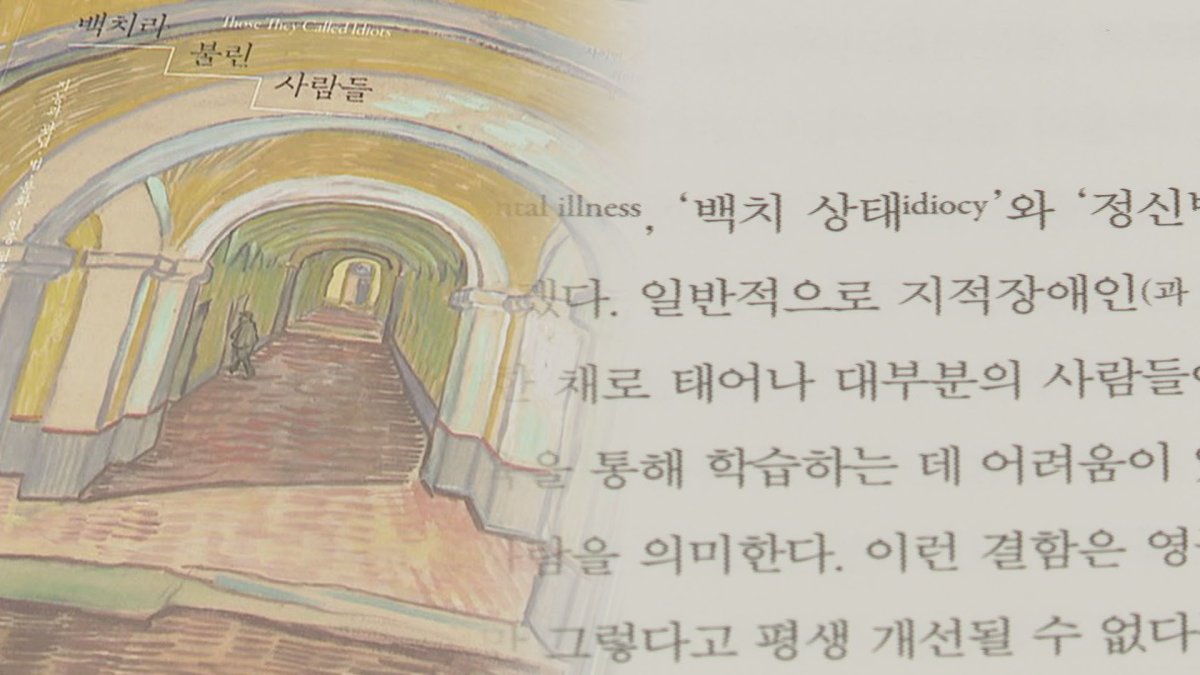 백치라
불린
사람들
Those They Called Idiots
illness, ‘백치 상태idiocy’와 ‘정신
했다. 일반적으로 지적장애인(과
채로 태어나 대부분의 사람들
을 통해 학습하는 데 어려움이
사람을 의미한다. 이런 결함은
그렇다고 평생 개선될 수 없다